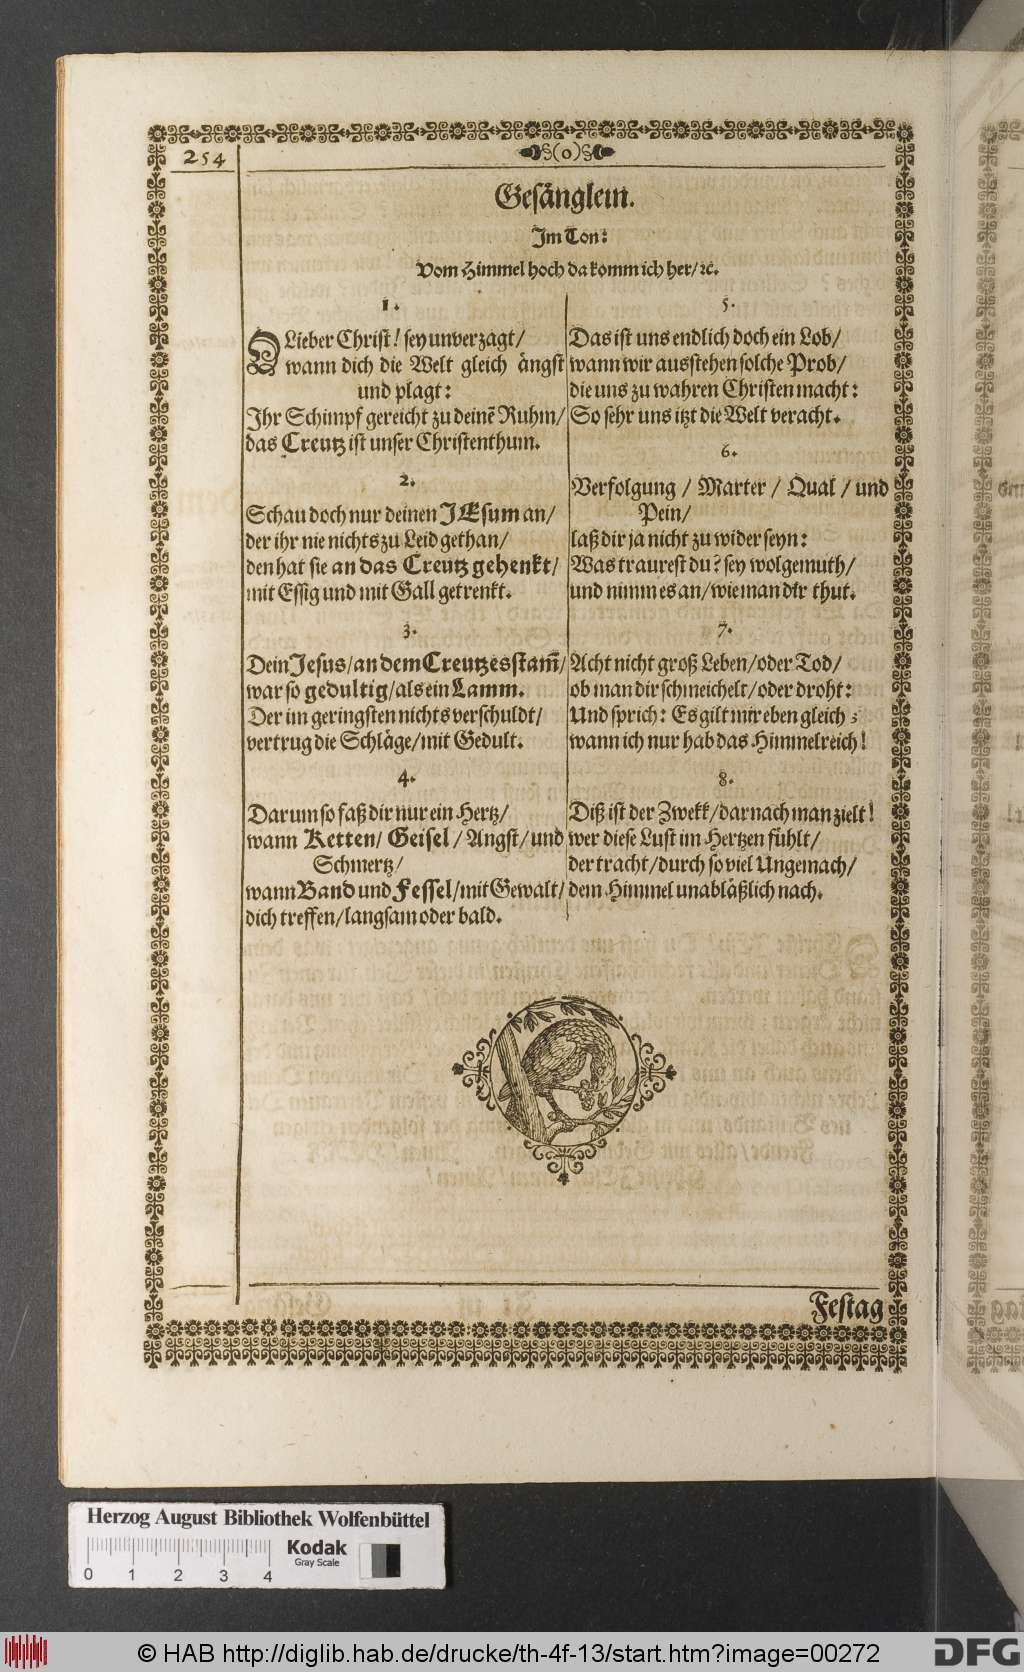 254
(o)
Gesänglein.
Im Ton:
Vom Himmel hoch da komm ich her/ ꝛc.
1.
O Lieber Christ! sey unverzagt/
wann dich die Welt gleich ängst
und plagt:
Ihr Schimpf gereicht zu deinē Ruhm/
das Creutz ist unser Christenthum.
2.
Schau doch nur deinen JEsum an/
der ihr nie nichts zu Leid gethan/
den hat sie an das Creutz gehenkt/
mit Essig und mit Gall getrenkt.
3.
Dein Jesus/ an dem Creutzesstam̄/
war so gedultig/ als ein Lamm.
Der im geringsten nichts verschuldt/
vertrug die Schläge/ mit Gedult.
4.
Darum so faß dir nur ein Hertz/
wann Ketten/ Geisel/ Angst/ und
Schmertz/
wann Band und Fessel/ mit Gewalt/
dich treffen/ langsam oder bald.
5.
Das ist uns endlich doch ein Lob/
wann wir ausstehen solche Prob/
die uns zu wahren Christen macht:
So sehr uns itzt die Welt veracht.
6.
Verfolgung/ Marter/ Qual/ und
Pein/
laß dir ja nicht zu wider seyn:
Was traurest du? sey wolgemuth/
und nimm es an/ wie man dir thut.
7.
Acht nicht groß Leben/ oder Tod/
ob man dir schmeichelt/ oder droht:
Und sprich: Es gilt mir eben gleich;
wann ich nur hab das Himmelreich!
8.
Diß ist der Zwekk/ darnach man zielt!
wer diese Lust im Hertzen fühlt/
der tracht/ durch so viel Ungemach/
dem Himmel unabläßlich nach.
Festag
Herzog August Bibliothek Wolfenbüttel
Kodak
Gray Scale
0 1 2 3 4
© HAB http://diglib.hab.de/drucke/th-4f-13/start.htm?image=00272
DFG